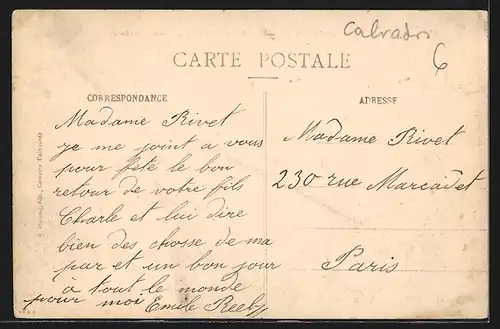 Calvados
6
CARTE POSTALE
CORRESPONDANCE
Madame Rivet
je me joint a vous
pour fete le bon
retour de votre fils
Charle et lui dire
bien des chosse de ma
par et un bon jour
à tout le monde
pour moi Emile
ADRESSE
Madame Rivet
230 rue Marcadet
Paris